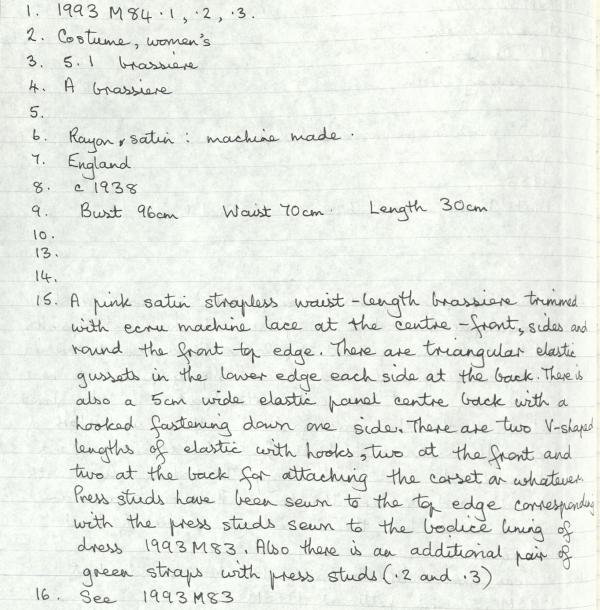 1. 1993 M84 .1, .2, .3.
2. Costume, women's
3. 5.1 brassiere
4. A brassiere
5.
6. Rayon, satin : machine made.
7. England
8. c 1938
9. Bust 96cm Waist 70cm. Length 30cm
10.
13.
14.
15. A pink satin strapless waist-length brassiere trimmed
with ecru machine lace at the centre-front, sides and
round the front top edge. There are triangular elastic
gussets in the lower edge each side at the back. There is
also a 5cm wide elastic panel centre back with a
hooked fastening down one side. There are two V-shaped
lengths of elastic with hooks, two at the front and
two at the back for attaching the corset or whatever.
Press studs have been sewn to the top edge corresponding
with the press studs sewn to the bodice lining of
dress 1993M83. Also there is an additional pair of
green straps with press studs (.2 and .3)
16. See 1993M83